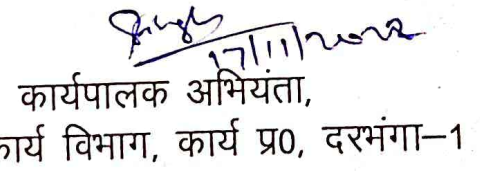 17/11/2022
कार्यपालक अभियंता,
कार्य विभाग, कार्य प्र0, दरभंगा–1